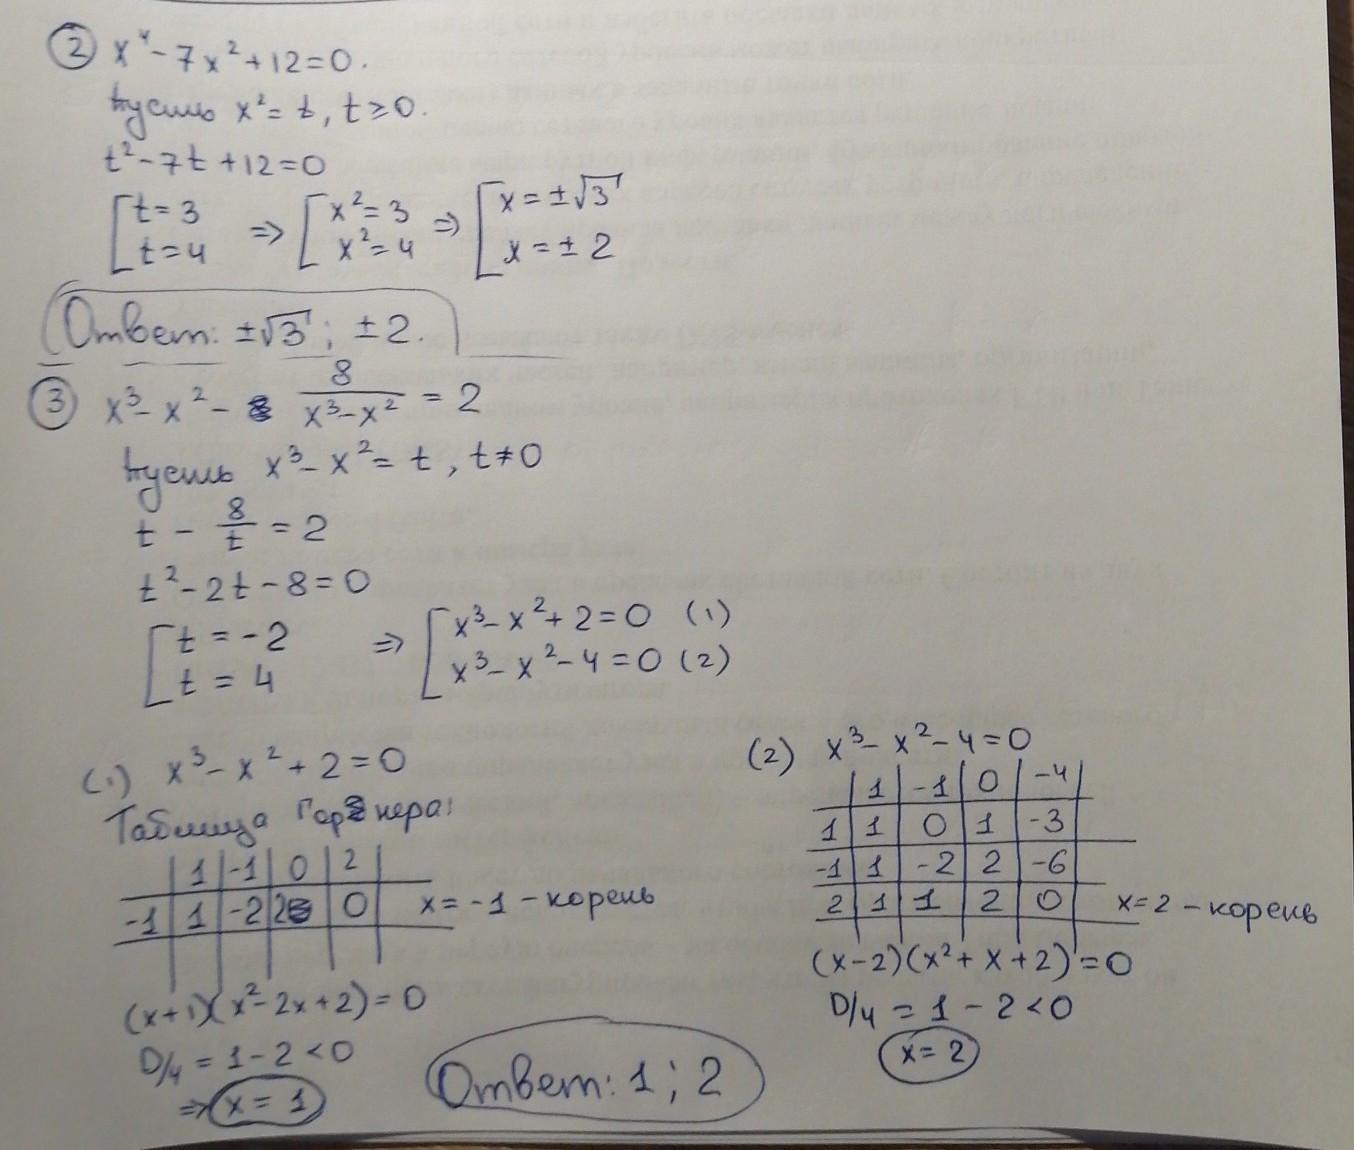 ② x⁴ - 7x² + 12 = 0.
Пусть x² = t, t ≥ 0.
t² - 7t + 12 = 0
[t = 3 ⇒ [x² = 3 ⇒ [x = ±√3
t = 4 x² = 4 x = ± 2
Ответ: ±√3; ±2.
③ x³ - x² - 8/(x³ - x²) = 2
Пусть x³ - x² = t, t ≠ 0
t - 8/t = 2
t² - 2t - 8 = 0
[t = -2 ⇒ [x³ - x² + 2 = 0 (1)
t = 4 x³ - x² - 4 = 0 (2)
(1) x³ - x² + 2 = 0
Таблица Горнера:
1 -1 0 2
-1 1 -2 2 0 x = -1 - корень
(x+1)(x² - 2x + 2) = 0
D/4 = 1 - 2 < 0
⇒ x = 1
(2) x³ - x² - 4 = 0
1 -1 0 -4
1 1 0 1 -3
-1 1 -2 2 -6
2 1 1 2 0 x = 2 - корень
(x - 2)(x² + x + 2) = 0
D/4 = 1 - 2 < 0
x = 2
Ответ: 1; 2